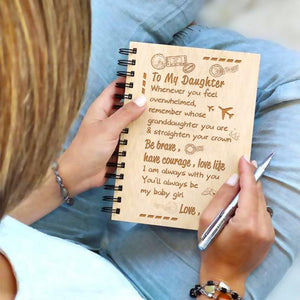 To My Daughter
Whenever you feel
overwhelmed,
remember whose
granddaughter you are
& straighten your crown
Be brave,
have courage, love life
I am always with you
You'll always be
my baby girl
Love,